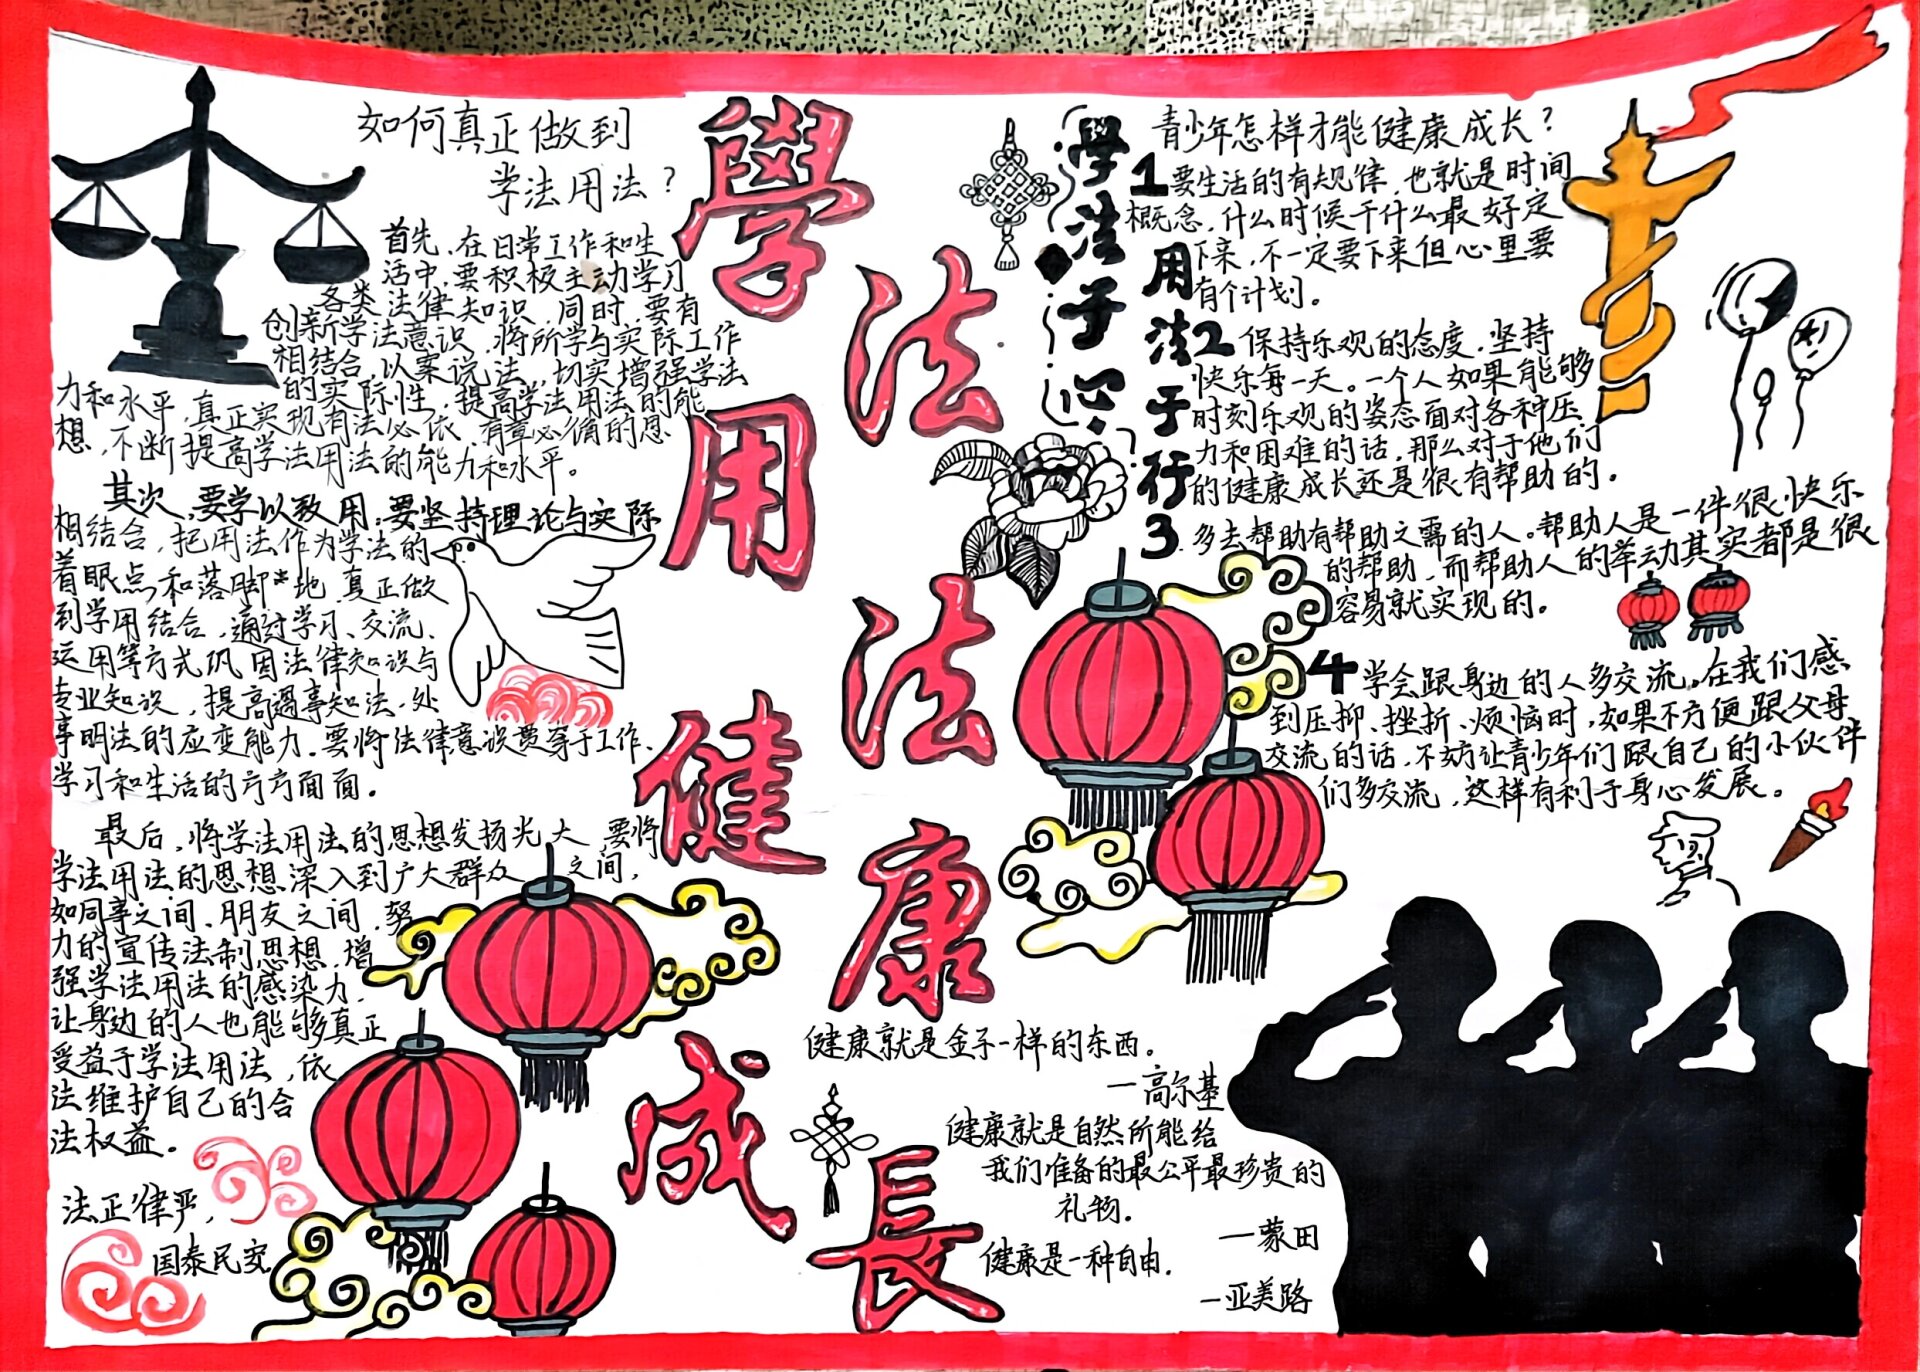 如何真正做到
学法用法？
首先，在日常工作和生
活中，要积极主动学习
各类法律知识，同时，要有
创新学法意识，将所学与实际工作
相结合，以案说法，切实增强学法
的实际性，提高学法用法的能
力和水平，真正实现有法必依，有章必循的思
想，不断提高学法用法的能力和水平。
其次，要学以致用。要坚持理论与实际
相结合，把用法作为学法的
着眼点和落脚地，真正做
到学用结合，通过学习、交流、
运用等方式巩固法律知识与
专业知识，提高遇事知法、处
事明法的应变能力。要将法律意识贯穿于工作、
学习和生活的方方面面。
最后，将学法用法的思想发扬光大，要将
学法用法的思想深入到广大群众之间，
如同事之间、朋友之间，努
力的宣传法制思想，增
强学法用法的感染力，
让身边的人也能够真正
受益于学法用法，依
法维护自己的合
法权益。
法正律严，
国泰民安
學法用法
健康成長
學法于心
用法于行
青少年怎样才能健康成长？
1要生活的有规律，也就是时间
概念，什么时候干什么最好定
下来，不一定要下来但心里要
有个计划。
2保持乐观的态度，坚持
快乐每一天。一个人如果能够
时刻乐观的姿态面对各种压
力和困难的话，那么对于他们
的健康成长还是很有帮助的。
3.多去帮助有帮助之需的人。帮助人是一件很快乐
的帮助，而帮助人的举动其实都是很
容易就实现的。
4学会跟身边的人多交流。在我们感
到压抑、挫折、烦恼时，如果不方便跟父母
交流的话，不妨让青少年们跟自己的小伙伴
们多交流，这样有利于身心发展。
健康就是金子一样的东西。
—高尔基
健康就是自然所能给
我们准备的最公平最珍贵的
礼物.
—蒙田
健康是一种自由.
—亚美路